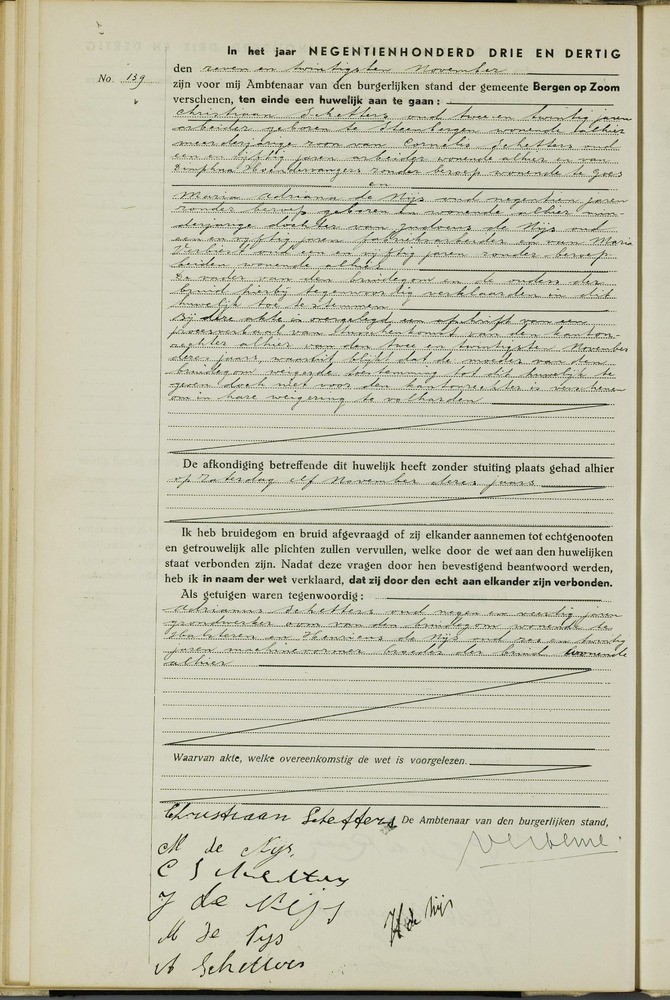 In het jaar NEGENTIENHONDERD DRIE EN DERTIG
den zeven en twintigsten November
No. 139
zijn voor mij Ambtenaar van den burgerlijken stand der gemeente Bergen op Zoom
verschenen, ten einde een huwelijk aan te gaan:
Christiaan Scheffers oud twee en twintig jaren
arbeider geboren te Steenbergen wonende alhier
meerderjarige zoon van Cornelis Scheffers oud
een en vijftig jaren arbeider wonende alhier en van
Dimphna zonder beroep wonende te Goes
en
Maria Adriana de Nijs oud negentien jaren
zonder beroep geboren en wonende alhier min-
derjarige dochter van de Nijs oud
een en vijftig jaren fabrieksarbeider en van Maria
oud een en vijftig jaren zonder beroep
beiden wonende alhier
De vader van den bruidegom en de ouders der
bruid hierbij tegenwoordig verklaarden in dit
huwelijk toe te stemmen
Bij deze akte is overgelegd een afschrift van een
procesverbaal van den kanton-
rechter alhier van den twee en twintigsten November
dezes jaars waaruit blijkt dat de moeder van den
bruidegom weigerde toestemming tot dit huwelijk te
geven doch niet voor den kantonrechter is verschenen
om in hare weigering te volharden
De afkondiging betreffende dit huwelijk heeft zonder stuiting plaats gehad alhier
op Zaterdag elf November dezes jaars
Ik heb bruidegom en bruid afgevraagd of zij elkander aannemen tot echtgenooten
en getrouwelijk alle plichten zullen vervullen, welke door de wet aan den huwelijken
staat verbonden zijn. Nadat deze vragen door hen bevestigend beantwoord werden,
heb ik in naam der wet verklaard, dat zij door den echt aan elkander zijn verbonden.
Als getuigen waren tegenwoordig:
Adrianus Scheffers oud negen en veertig jaren
grondwerker oom van den bruidegom wonende te
Halsteren en Henricus de Nijs oud zes en twintig
jaren machinevormer broeder der bruid wonende
alhier
Waarvan akte, welke overeenkomstig de wet is voorgelezen.
Christiaan Scheffers De Ambtenaar van den burgerlijken stand,
M de Nijs
C Scheffers
J de Nijs
H de Nijs
M de Nijs
A Scheffers